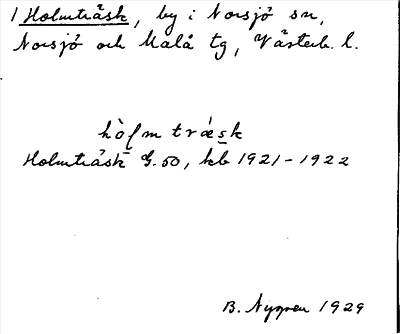 1 Holmträsk, by i Norsjö sn,
Norsjö och Malå tg, Västerb. l.
hòlm træ̀sk
Holmträsk G. 50, kb 1921-1922
B. Nygren 1929